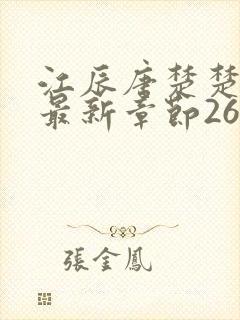 江辰唐楚楚
最新章節26
張金鳳